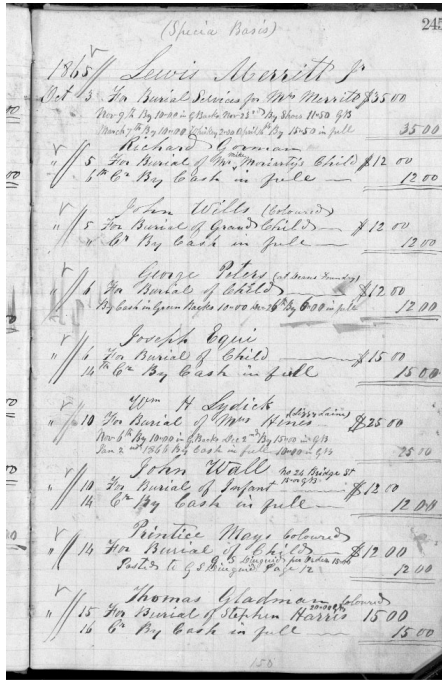 (Specia Basis)
245
1865 Lewis Merritt Jr
Oct 3 For Burial Services for Mrs Merritt $35 00
Nov 9th By 10=00 in G Backs Nov 23rd By Shoes 11=50 GB
March 7th By 10=00 By 15=50 in full 35 00
Richard Gorman
" 5 For Burial of Mr Child $12 00
6th Cr By Cash in full 12 00
John Wills (Coloured)
" 5 For Burial of Grand Child $12 00
" Cr By Cash in full 12 00
George Peters (at Foundry)
" 6 For Burial of Child $12 00
By Cash in Green Backs 10=00 26th By 6=00 in full 12 00
Joseph Eqüi
" 6 For Burial of Child $15 00
14th Cr By Cash in full 15 00
Wm H Lydick
" 10 For Burial of Mrs Hines $25 00
Nov 6th By 10=00 in G Backs Dec 2nd By 15=00 in GB
Jan 2nd 1866 By Cash in full 10=00 in GB 25 00
John Wall no 24 Bridge St
" 10 For Burial of Infant $12 00
14 Cr By Cash in full 12 00
Printice Mays Coloured
" 14 For Burial of Child $12 00
Posted to G S Diuguid Page 12 12 00
Thomas Gladman Coloured
" 15 For Burial of Stephen Harris 15 00
16 Cr By Cash in full 15 00
150